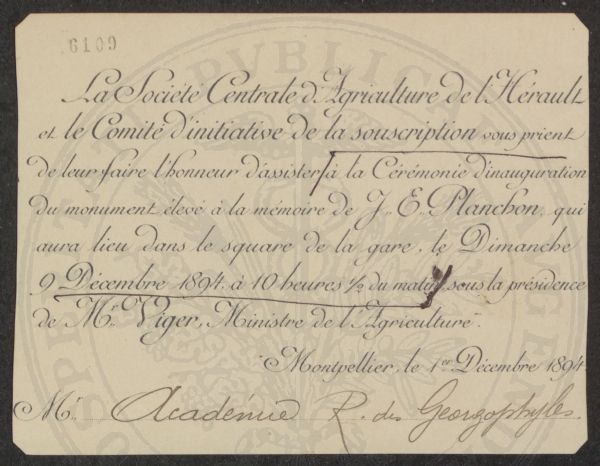 6109
La Société Centrale d'Agriculture de l'Hérault
et le Comité d'initiative de la souscription vous prient
de leur faire l'honneur d'assister à la Cérémonie d'inauguration
du monument élevé à la mémoire de J. E. Planchon, qui
aura lieu dans le square de la gare, le Dimanche
9 Décembre 1894, à 10 heures ½ du matin, sous la présidence
de Mr. Viger, Ministre de l'Agriculture.
Montpellier, le 1er Décembre 1894
Mr. Académie R. des Georgophyles.